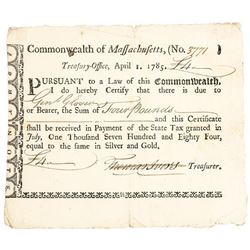 Commonwealth of Massachusetts, (No. 3771
Treasury-Office, April 1. 1785. £4
PURSUANT to a Law of this Commonwealth,
I do hereby Certify that there is due to
Genl Glover
or Bearer, the Sum of Four Pounds
and this Certificate
shall be received in Payment of the State Tax granted in
July, One Thousand Seven Hundred and Eighty Four,
equal to the same in Silver and Gold,
£4 Thomas Ivers Treasurer.